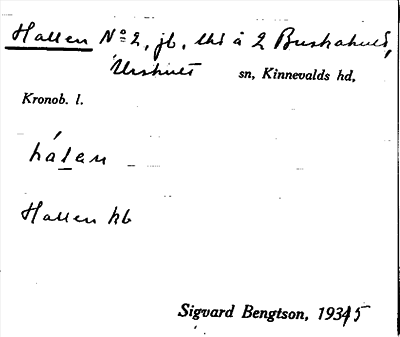 Hallen Nº 2, jb, lht å 2 Buskahult,
Urshult sn, Kinnevalds hd,
Kronob. l.
hálen
Hallen kb
Sigvard Bengtson, 1935